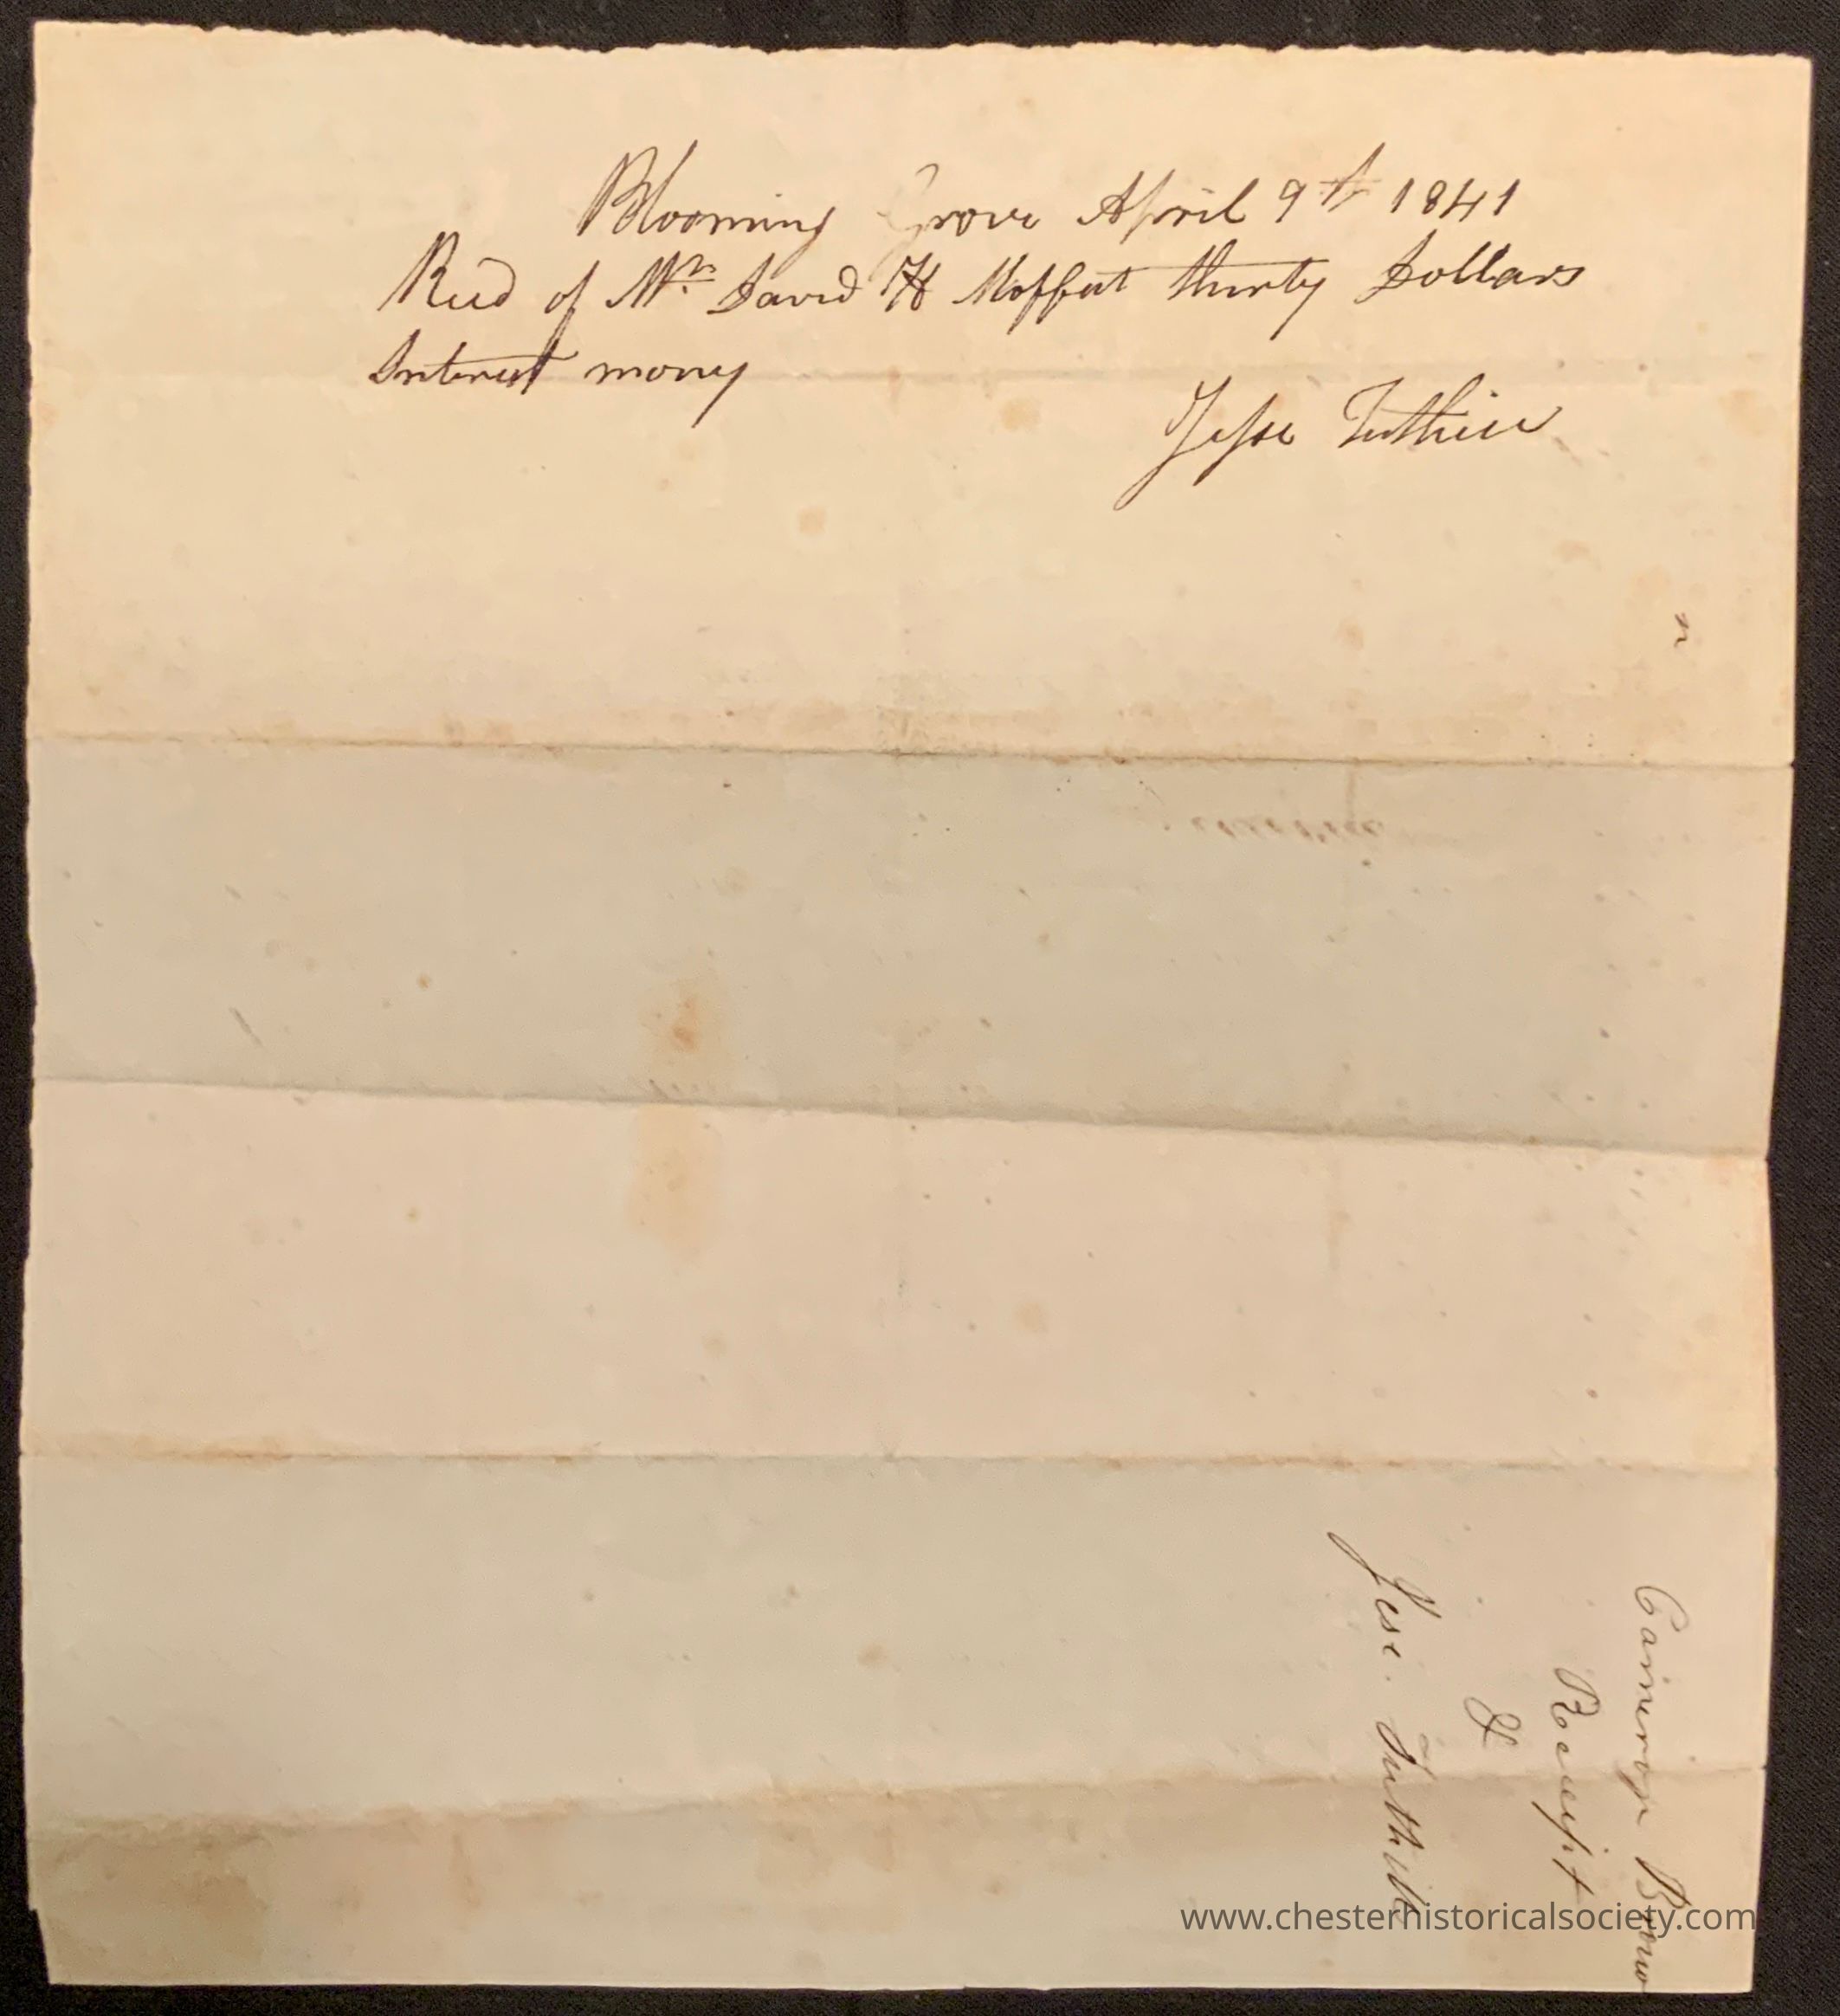 Blooming Grove April 9th 1841
Recd of Mr. David H Moffat thirty Dollars
Interest mony
Jesse Tuthill
n
Cameron Brow
Receipt
&
Jese. Tuthill
www.chesterhistoricalsociety.com